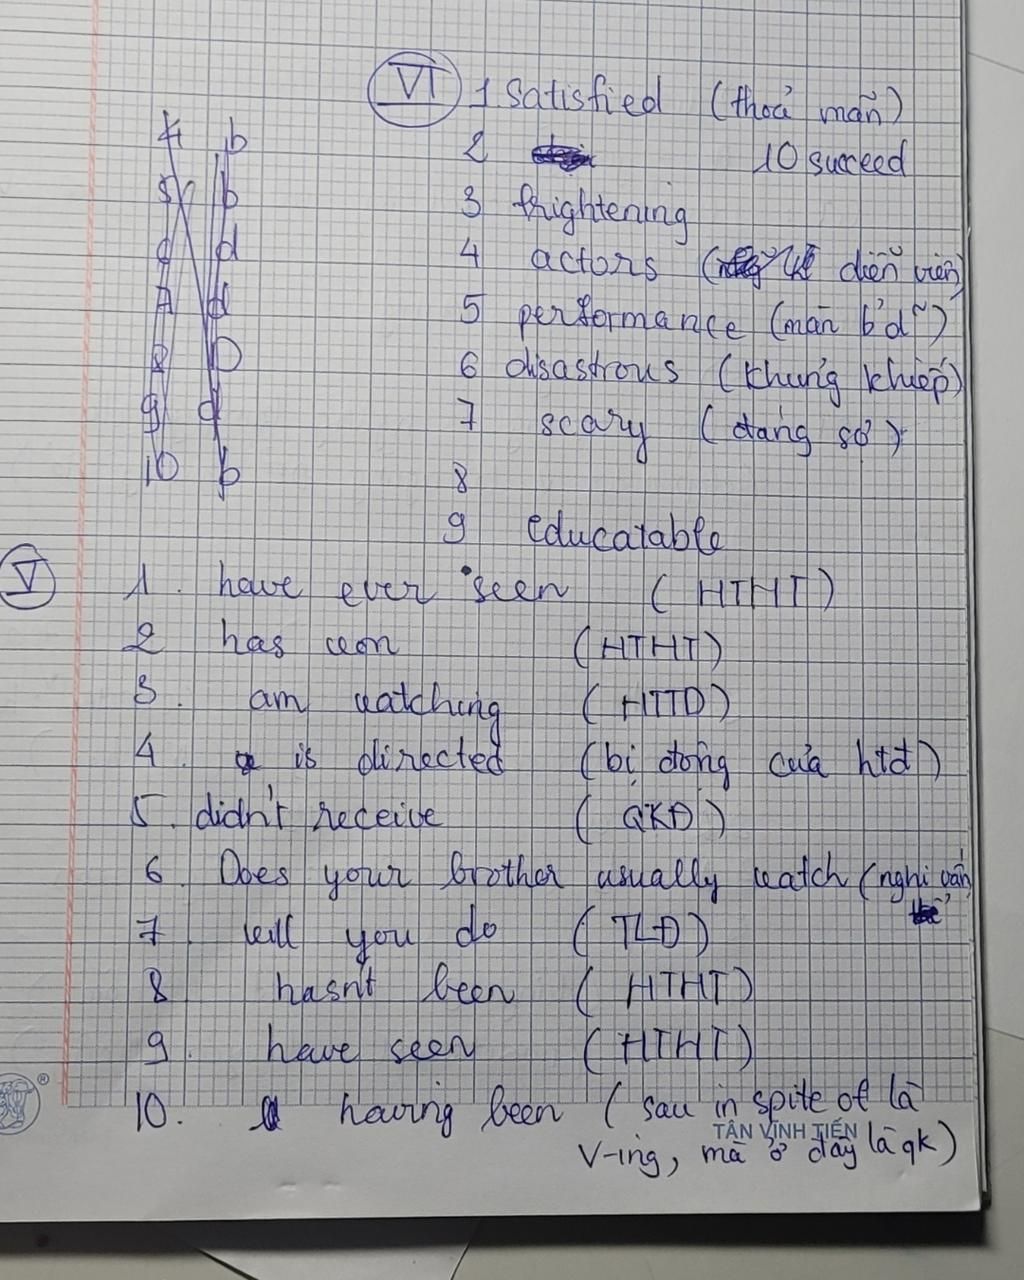 VI 1 Satisfied (thoả mãn)
2 10 succeed
3 frightening
4 actors ( diễn viên)
5 performance (màn b'd~)
6 disastrous (khủng khiếp)
7 scary (đáng sợ)
8
9 educatable
4 b
5 b
d
A d
8 D
9 d
10 b
V 1. have ever seen (HTHT)
2 has won (HTHT)
3. am watching (HTTD)
4. is directed (bị động của htđ)
5. didn't receive (QKĐ)
6. Does your brother usually watch (nghi vấn
7. will you do (TLĐ)
8 hasn't been (HTHT)
9. have seen (HTHT)
10. having been (sau in spite of là
TÂN VĨNH TIẾN
V-ing, mà ở đây là qk)